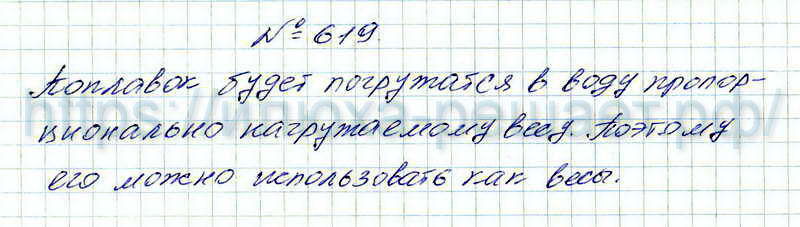 № 619.
Поплавок будет погружатся в воду пропор-
ционально нагружаемому весу. Поэтому
его можно использовать как весы.